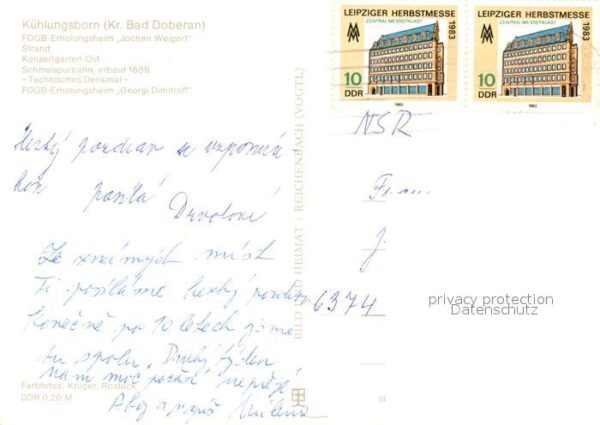 Kühlungsborn (Kr. Bad Doberan)
FDGB-Erholungsheim „Jochen Weigert"
Strand
Konzertgarten Ost
Schmalspurbahn, erbaut 1886
—Technisches Denkmal—
FDGB-Erholungsheim „Georgi Dimitroff"
LEIPZIGER HERBSTMESSE 1983
ZENTRAL-MESSEPALAST
10
DDR
1983
LEIPZIGER HERBSTMESSE 1983
ZENTRAL-MESSEPALAST
10
DDR
1983
NSR
Frau
J.
6374
Hezký pozdrav a vzpomín
kou posílá
Ze známých míst
Ti posíláme hezký pozdrav
konečně po 10 letech jsme
tu spolu. Druhý týden
nám moc počasí nepřeje
a napiš Milena
BILD UND HEIMAT · REICHENBACH (VOGTL)
Farbfotos: Krüger, Rostock
DDR 0,20 M
privacy protection
Datenschutz